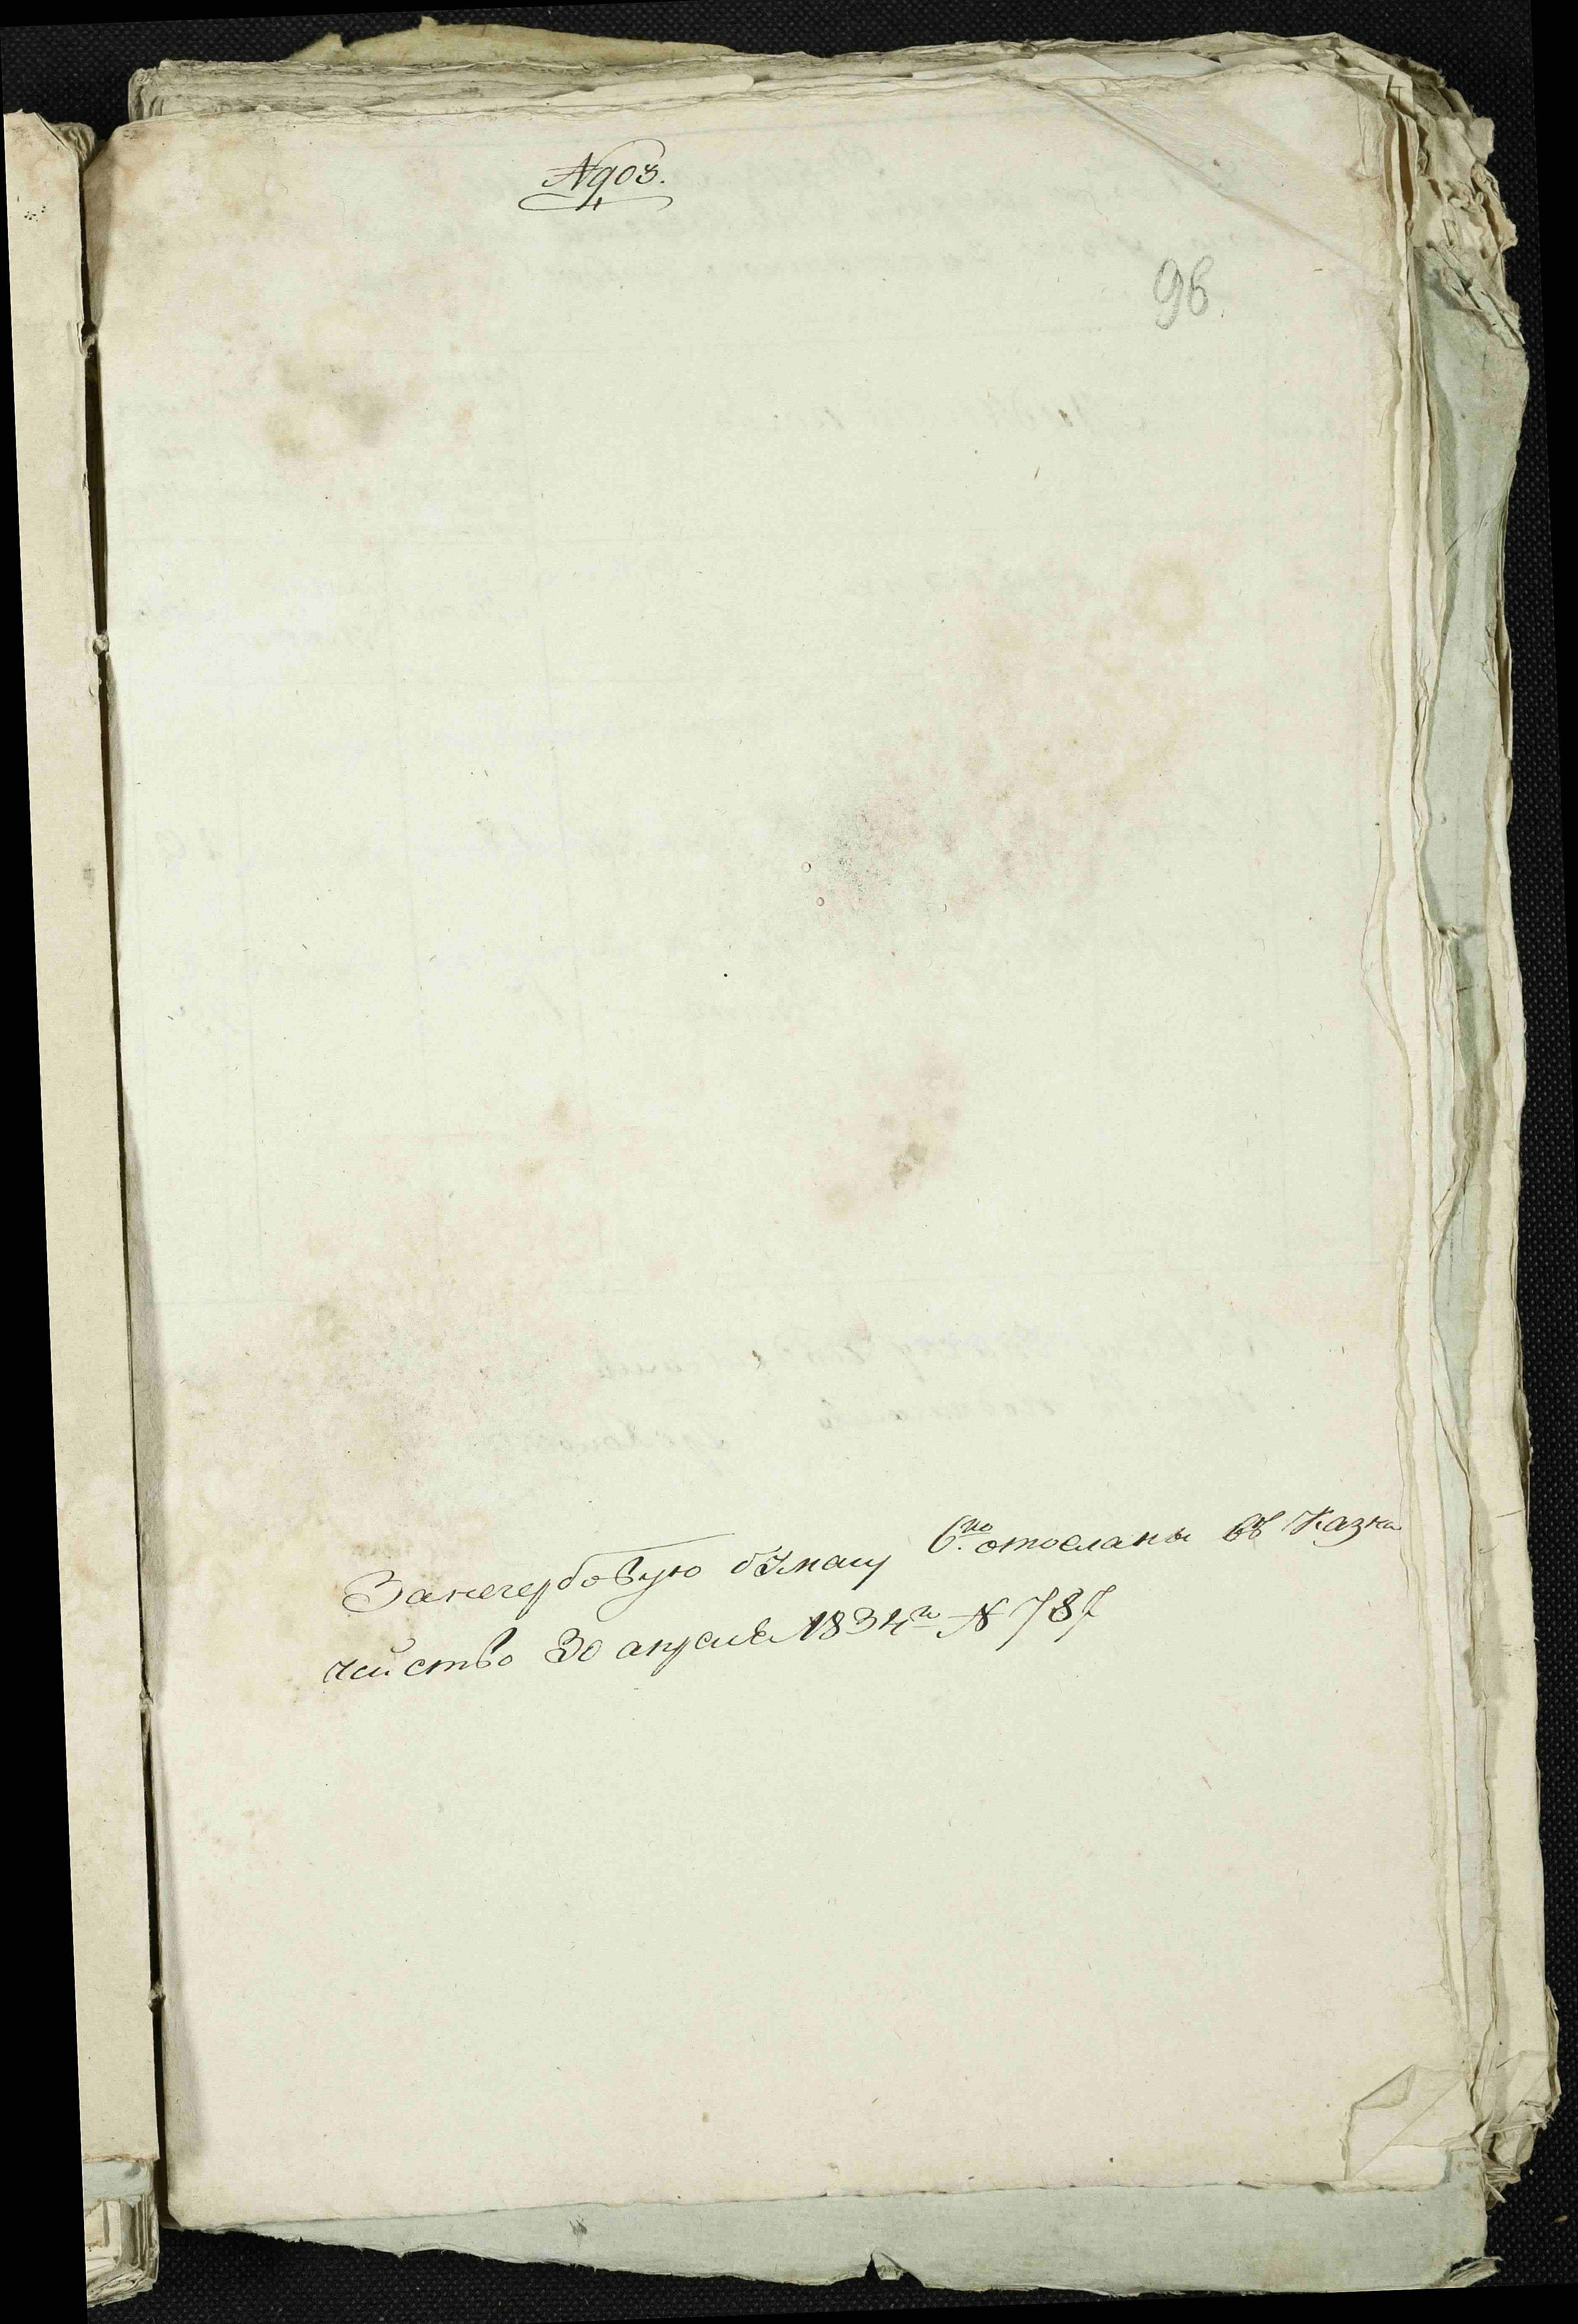 № 903.
96.
За негербовую бумагу отосланы въ Казна
чейство 30 апреля 1834го № 787